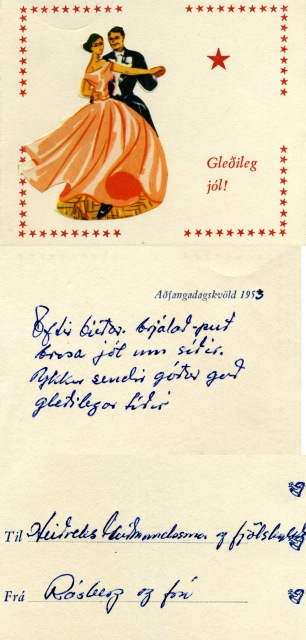 Gleðileg
jól!
Aðfangadagskvöld 1953
Eftir
brosa jól um síðir.
Ykkur sendir góður guð
gleðilegar tíðir
Til Guðmundssonar og fjölskyldu
Frá Rósberg og frú